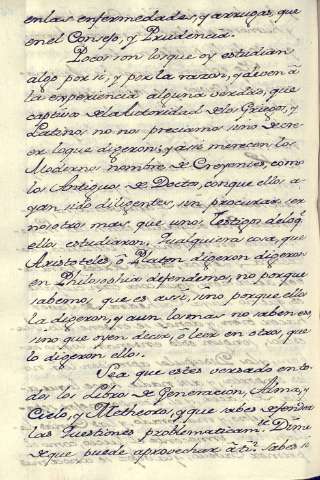 en las enfermedades, y arrugas, que
en el Consejo, y Prudencia.
Pocos son los que oy estudian
algo por si, y por la razon, y deven â
la experiencia alguna verdad, que
captivos de la Autoridad de los Griegos, y
Latinos no nos preciamos sino de cre
er lo que digeron; y assi merecen los
Modernos nombre de Creyentes, como
los Antiguos de Doctos, con que ellos a-
yan sido diligentes, sin procurar ser
nosotros mas, que unos Testigos de lo q.
ellos estudiaron. Qualquiera cosa, que
Aristoteles ô Platon digeron digeron
en Philosophia defendemos, no porque
sabemos, que es assi, sino porque ellos
la digeron, y aun los mas no saben esso,
sino que oyen decir, ô leer en otros, que
lo digeron ellos.
Sea que estes versado en to-
dos los Libros de Generacion, Alma, y
Cielo, y Metheoros, y que sabes defender
las Questiones problematicam.te Dime
de que puede aprovechar â ti? sabes si